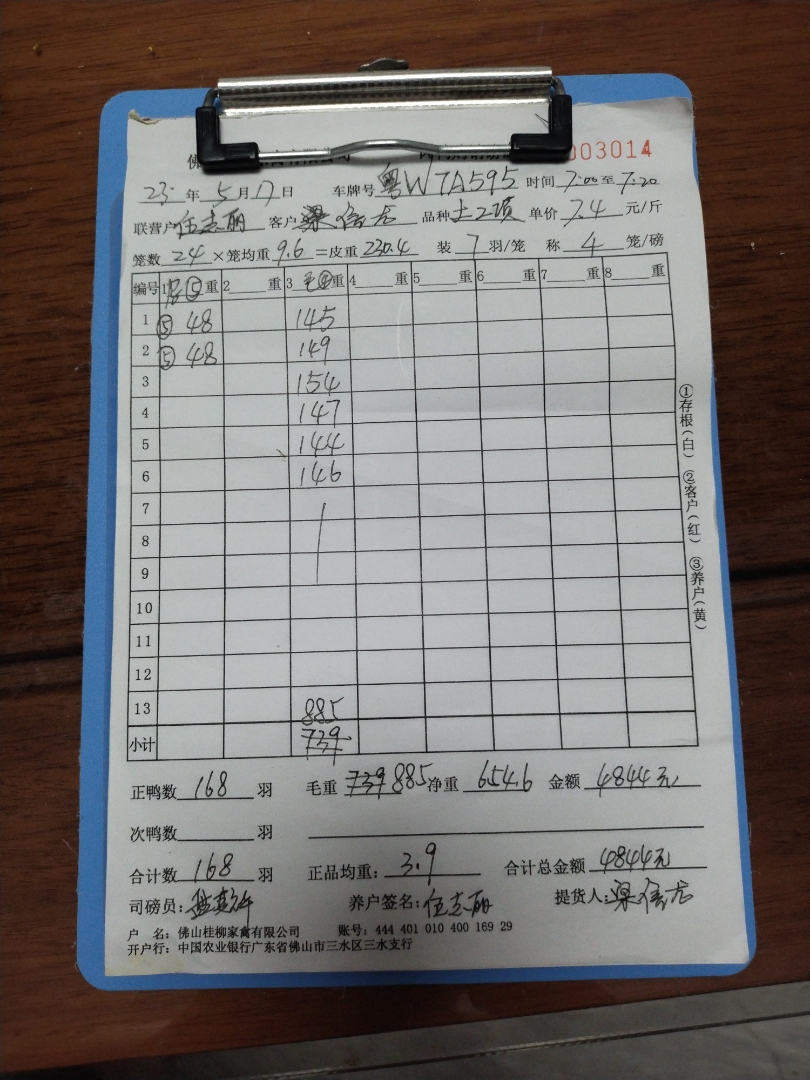 佛 003014
23 年 5 月 17 日 车牌号 粤W7A595 时间 7:00 至 7:20
联营户 任志丽 客户 梁信龙 品种 土2项 单价 7.4 元/斤
笼数 24 ×笼均重 9.6 =皮重 230.4 装 7 羽/笼 称 4 笼/磅
编号 1 ⑤重 2 重 3 毛④重 4 重 5 重 6 重 7 重 8 重
1 ⑤ 48 145
2 ⑤ 48 149
3 154
4 147
5 144
6 146
7
8
9
10
11
12
13 885
小计 739
正鸭数 168 羽 毛重 739 885 净重 654.6 金额 4844元
次鸭数 羽
合计数 168 羽 正品均重: 3.9 合计总金额 4844元
司磅员: 养户签名: 任志丽 提货人: 梁信龙
户 名: 佛山桂柳家禽有限公司 账号: 444 401 010 400 169 29
开户行: 中国农业银行广东省佛山市三水区三水支行
①存根(白) ②客户(红) ③养户(黄)